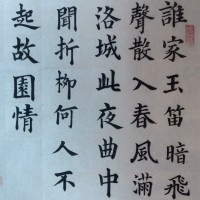 誰家玉笛暗飛
聲散入春風滿
洛城此夜曲中
聞折柳何人不
起故園情